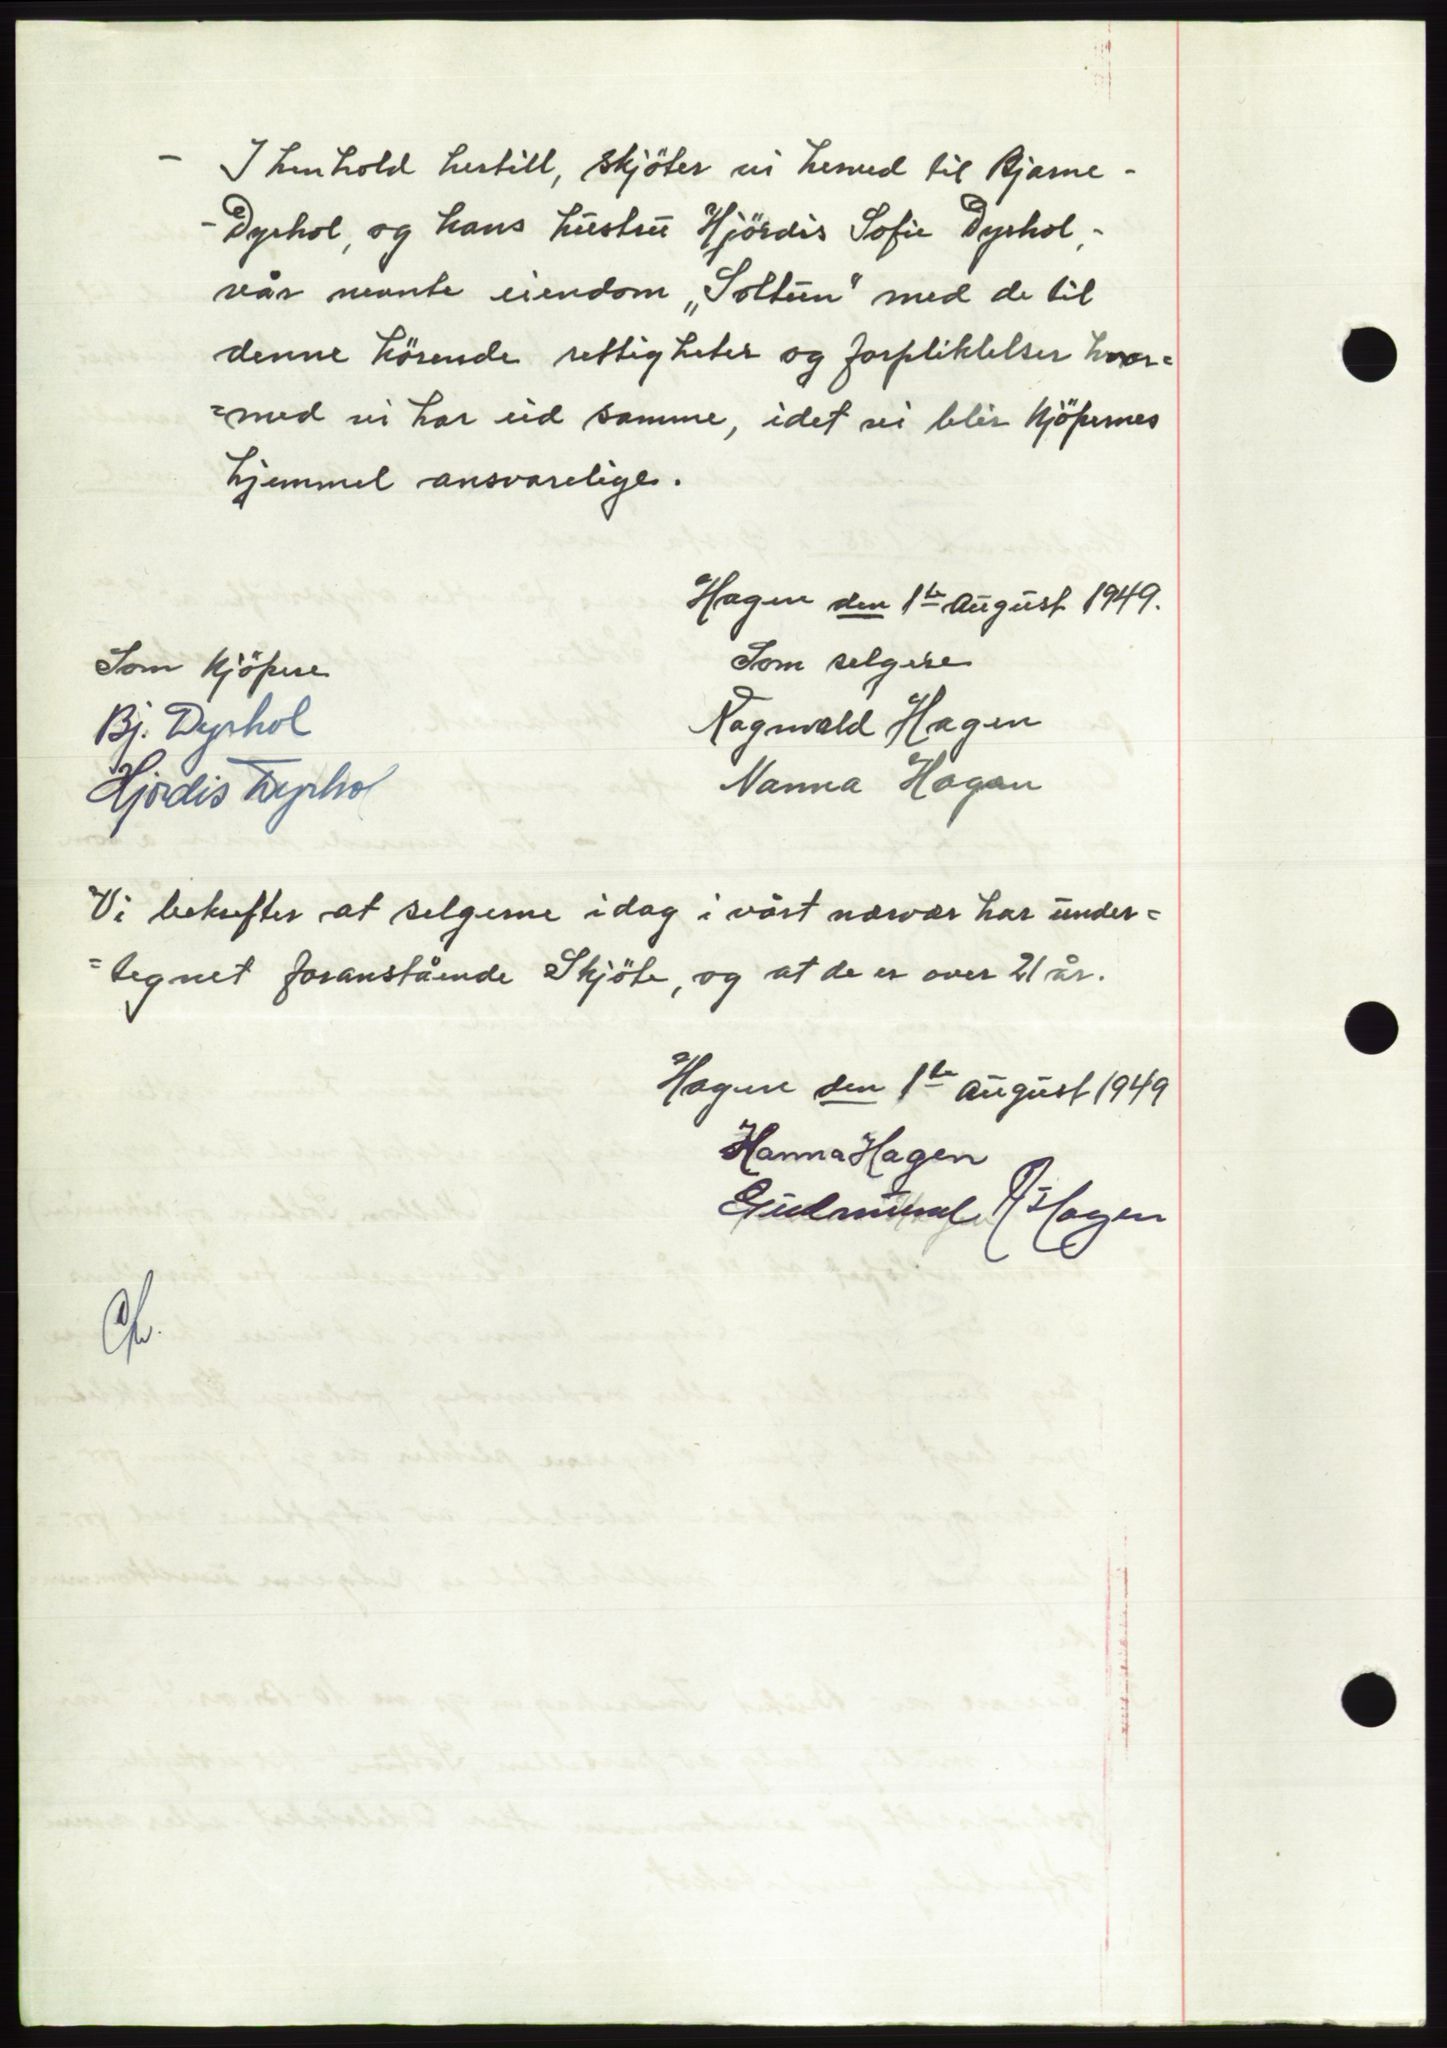 - I henhold hertill, skjöter vi herved til Bjarne -
- Dyrhol, og hans hustru Hjördis Sofie Dyrhol, -
vår nevnte eiendom „Soltun" med de til
denne hörende rettigheter og forpliktelser hvor=
=med vi har eid samme, idet vi blir kjöpernes
hjemmel ansvarelige.
Hagen den 1te August 1949.
Som kjöpere
Som selgere
Bj. Dyrhol
Ragnvald Hagen
Hjördis Dyrhol
Nanna Hagen
Vi bekrefter at selgerne idag i vårt nærvær har under=
=tegnet foranstående Skjöte, og at de er over 21 år.
Hagen den 1te August 1949
Hanna Hagen
Gudmund R. Hagen